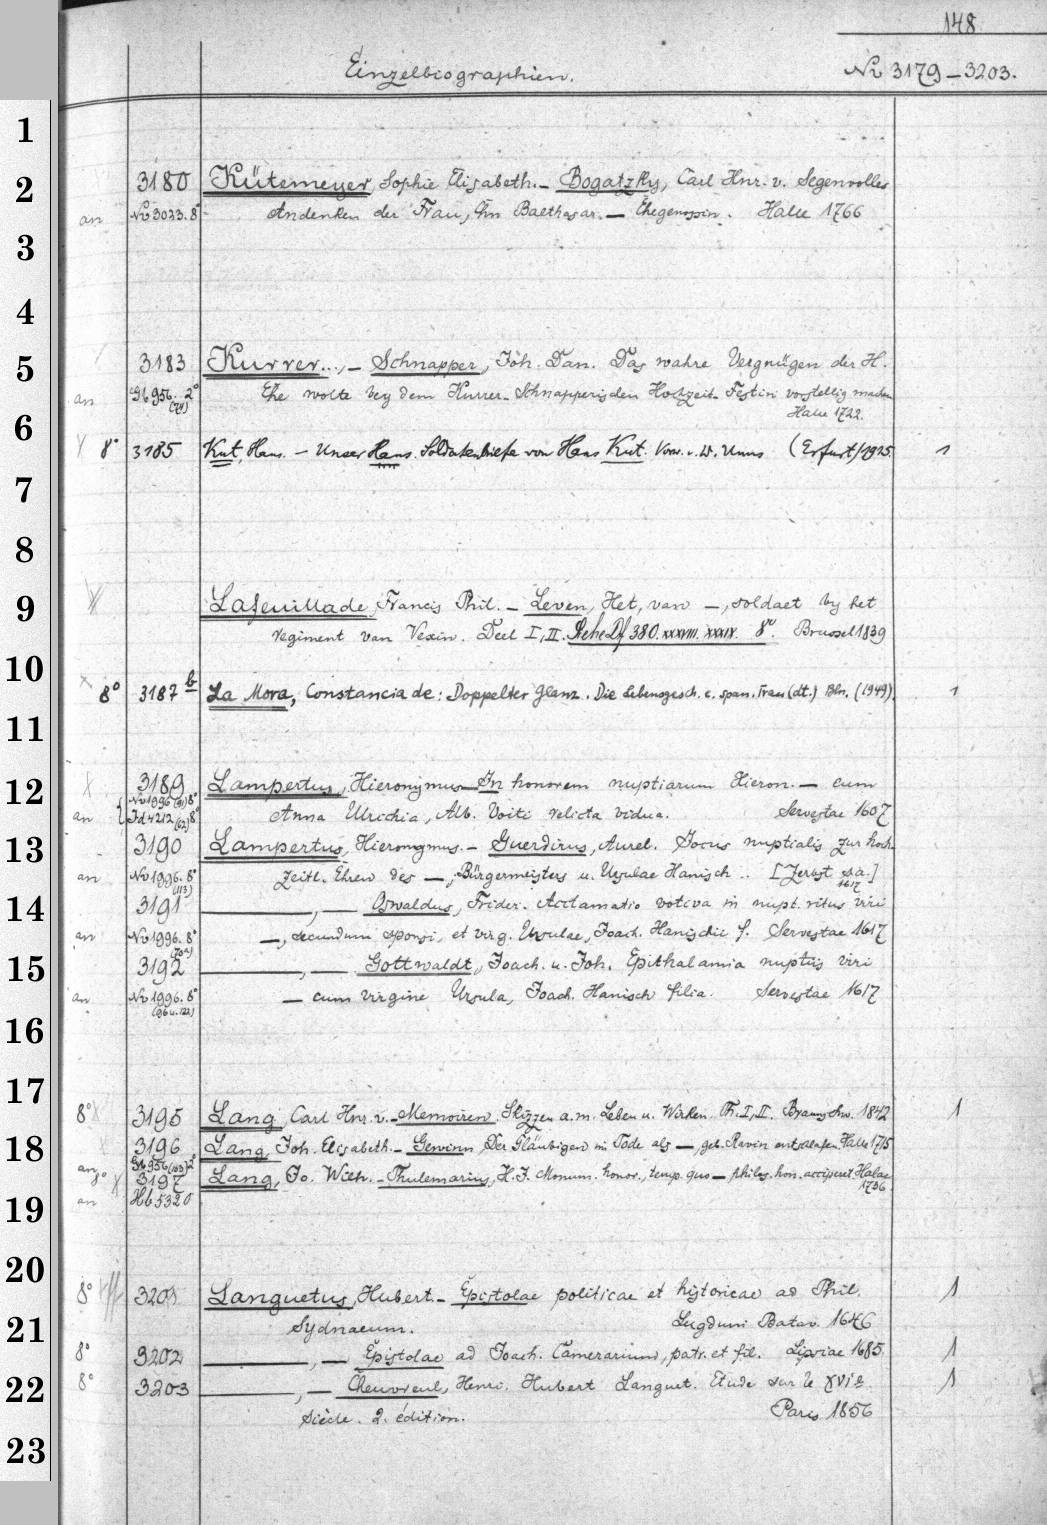 148
Einzelbiographien.
No 3179-3203.
1
2
3180 Kütemeyer, Sophie Elisabeth. - Bogatzky, Carl Hnr. v. Segenvolles
an No 3023. 8° Andenken der Frau, Chn Balthasar. — Ehegenossin. Halle 1766
3
4
5
3183 Kurrer..., - Schnapper, Joh. Dan. Das wahre Vergnügen der H.
an Gb 956. 2° (74) Ehe wolte bey dem Kurrer-Schnapperischen Hochzeit-Festin vorstellig machen
Halle 1722.
6
8° 3185 Kut, Hans. - Unser Hans. Soldatenbriefe von Hans Kut. Vorw. v. W. (Erfurt) 1925. 1
7
8
9
Lafeuillade, Francis Phil. - Leven, Het, van —, soldaet by het
regiment van Vexin. Deel I, II. Siehe Df 380. XXXVIII. XXXIV. 8°. Brussel 1839
10
8° 3187 b La Mora, Constancia de: Doppelter Glanz. Die Lebensgesch. e. span. Frau (dt.) Bln. (1949). 1
11
12
3189 Lampertus, Hieronymus - In honorem nuptiarum Hieron. — cum
No 1996 (91) 8°
an Id 4212 (62) 8° Anna Ulrichia, Alb. Voiti relicta vidua. Servestae 1607
13
3190 Lampertus, Hieronymus. - Guerdirus, Aurel. Jocus nuptialis zur hoch-
an No 1996. 8° (113) zeitl. Ehren des —, Bürgermeisters u. Ursulae Hanisch .. [Zerbst s. a.]
1617
14
3191 ———, — Oswaldus, Frider. Acclamatio votiva in nupt. ritus viri
an No 1996. 8° —, secundum sponsi, et virg. Ursulae, Joach. Hanischii f. Servestae 1617
15
3192 ———, — Gottwaldt, Joach. u. Joh. Epithalamia nuptiis viri
an No 1996. 8° (96 u. 122) — cum virgine Ursula, Joach. Hanisch filia. Servestae 1617
16
17
8° 3195 Lang, Carl Hnr. v. - Memoiren. Skizzen a. m. Leben u. Wirken. Th. I, II. Braunschw. 1842 1
18
3196 Lang, Joh. Elisabeth. - Gewinn, Der Gläubigen im Tode als —, geb. Ravin entschlafen. Halle 1715
an Gb 956 (103) 2°
8° 3197 Lang, Jo. Wilh. - Thulemarius, H. J. Monum. honor., temp. quo — philos. hon. acciperet Halae
1736
19
an Hb 5320
20
8° 3201 Languetus, Hubert. - Epistolae politicae et historicae ad Phil.
21
Sydnaeum. Lugduni Batav. 1646
8° 3202 ———, — Epistolae ad Joach. Camerarium, patr. et fil. Lipsiae 1685. 1
22
8° 3203 ———, — Chevreul, Henri. Hubert Languet. Etude sur le XVIe 1
siècle. 2. édition. Paris 1856
23